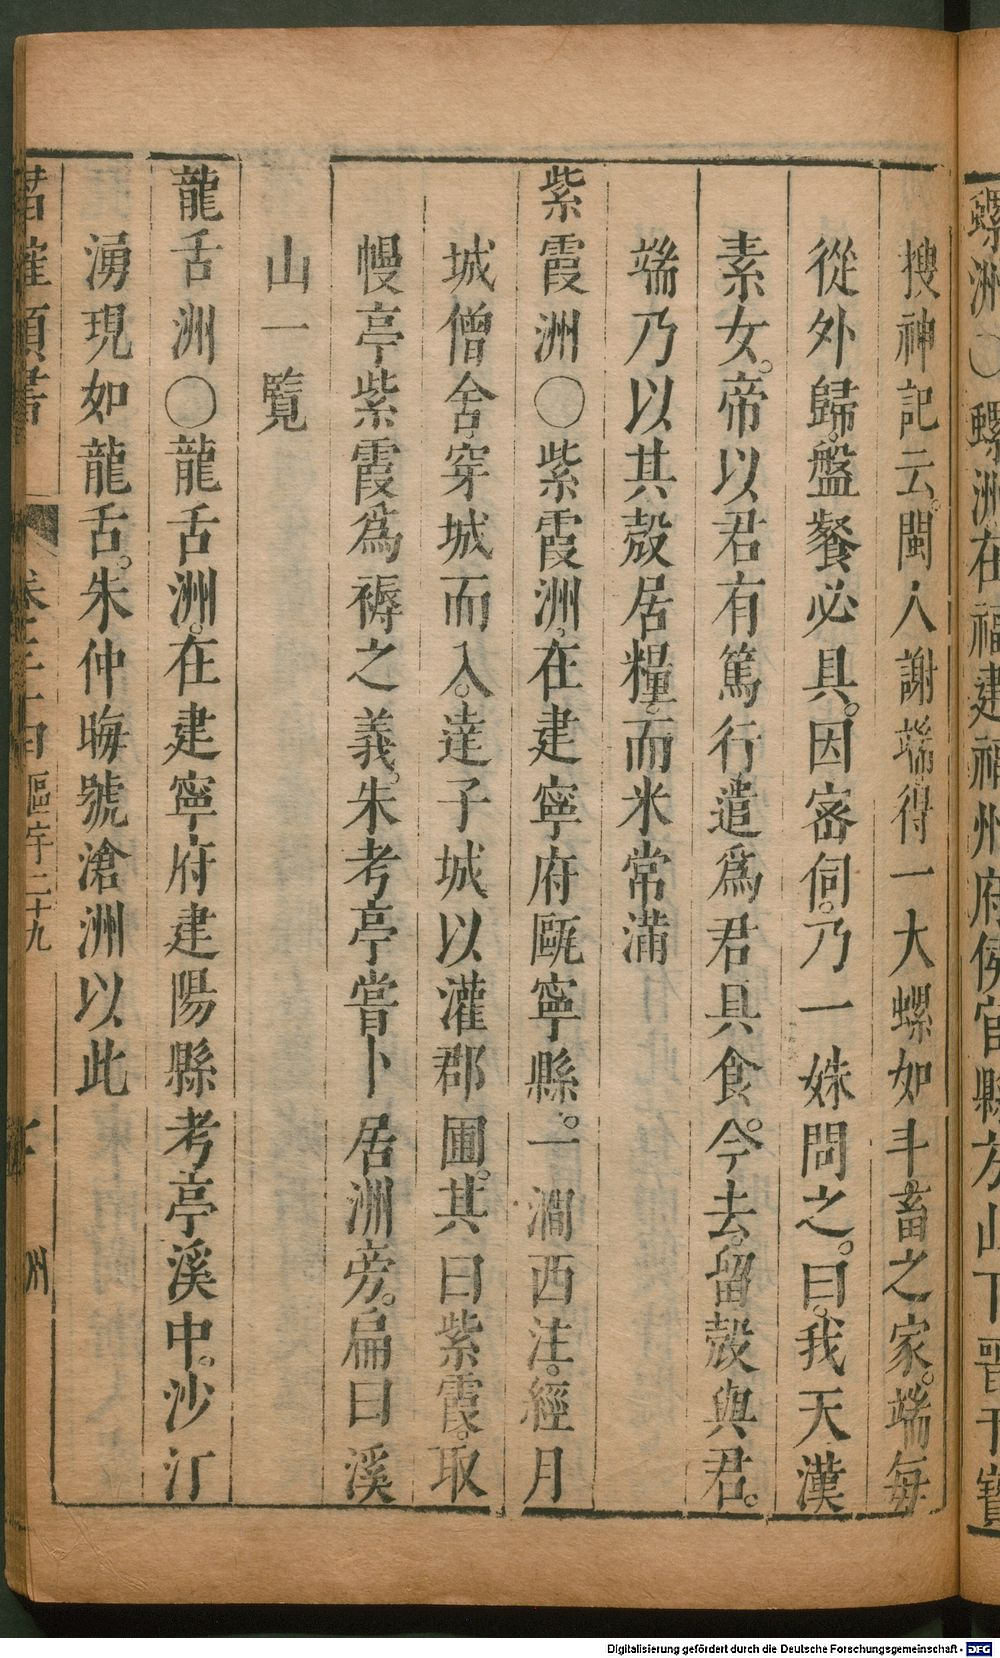 螺洲〇螺洲在福建福州府侯官縣方山下晉干寶
搜神記云。閩人謝端得一大螺如斗。畜之家。端每
從外歸。盤餐必具。因密伺。乃一姝。問之。曰。我天漢
素女。帝以君有篤行遣爲君具食。今去。留殼與君。
端乃以其殼居糧。而米常滿
紫霞洲〇紫霞洲。在建寧府甌寧縣。一澗西注。經月
城僧舍。穿城而入。達子城以灌郡圃。其曰紫霞。取
幔亭紫霞爲褥之義。朱考亭嘗卜居洲旁。扁曰溪
山一覽
龍舌洲〇龍舌洲。在建寧府建陽縣考亭溪中。沙汀
湧現如龍舌。朱仲晦號滄洲以此
潛確類書
區宇二十九
洲
Digitalisierung gefördert durch die Deutsche Forschungsgemeinschaft - DFG